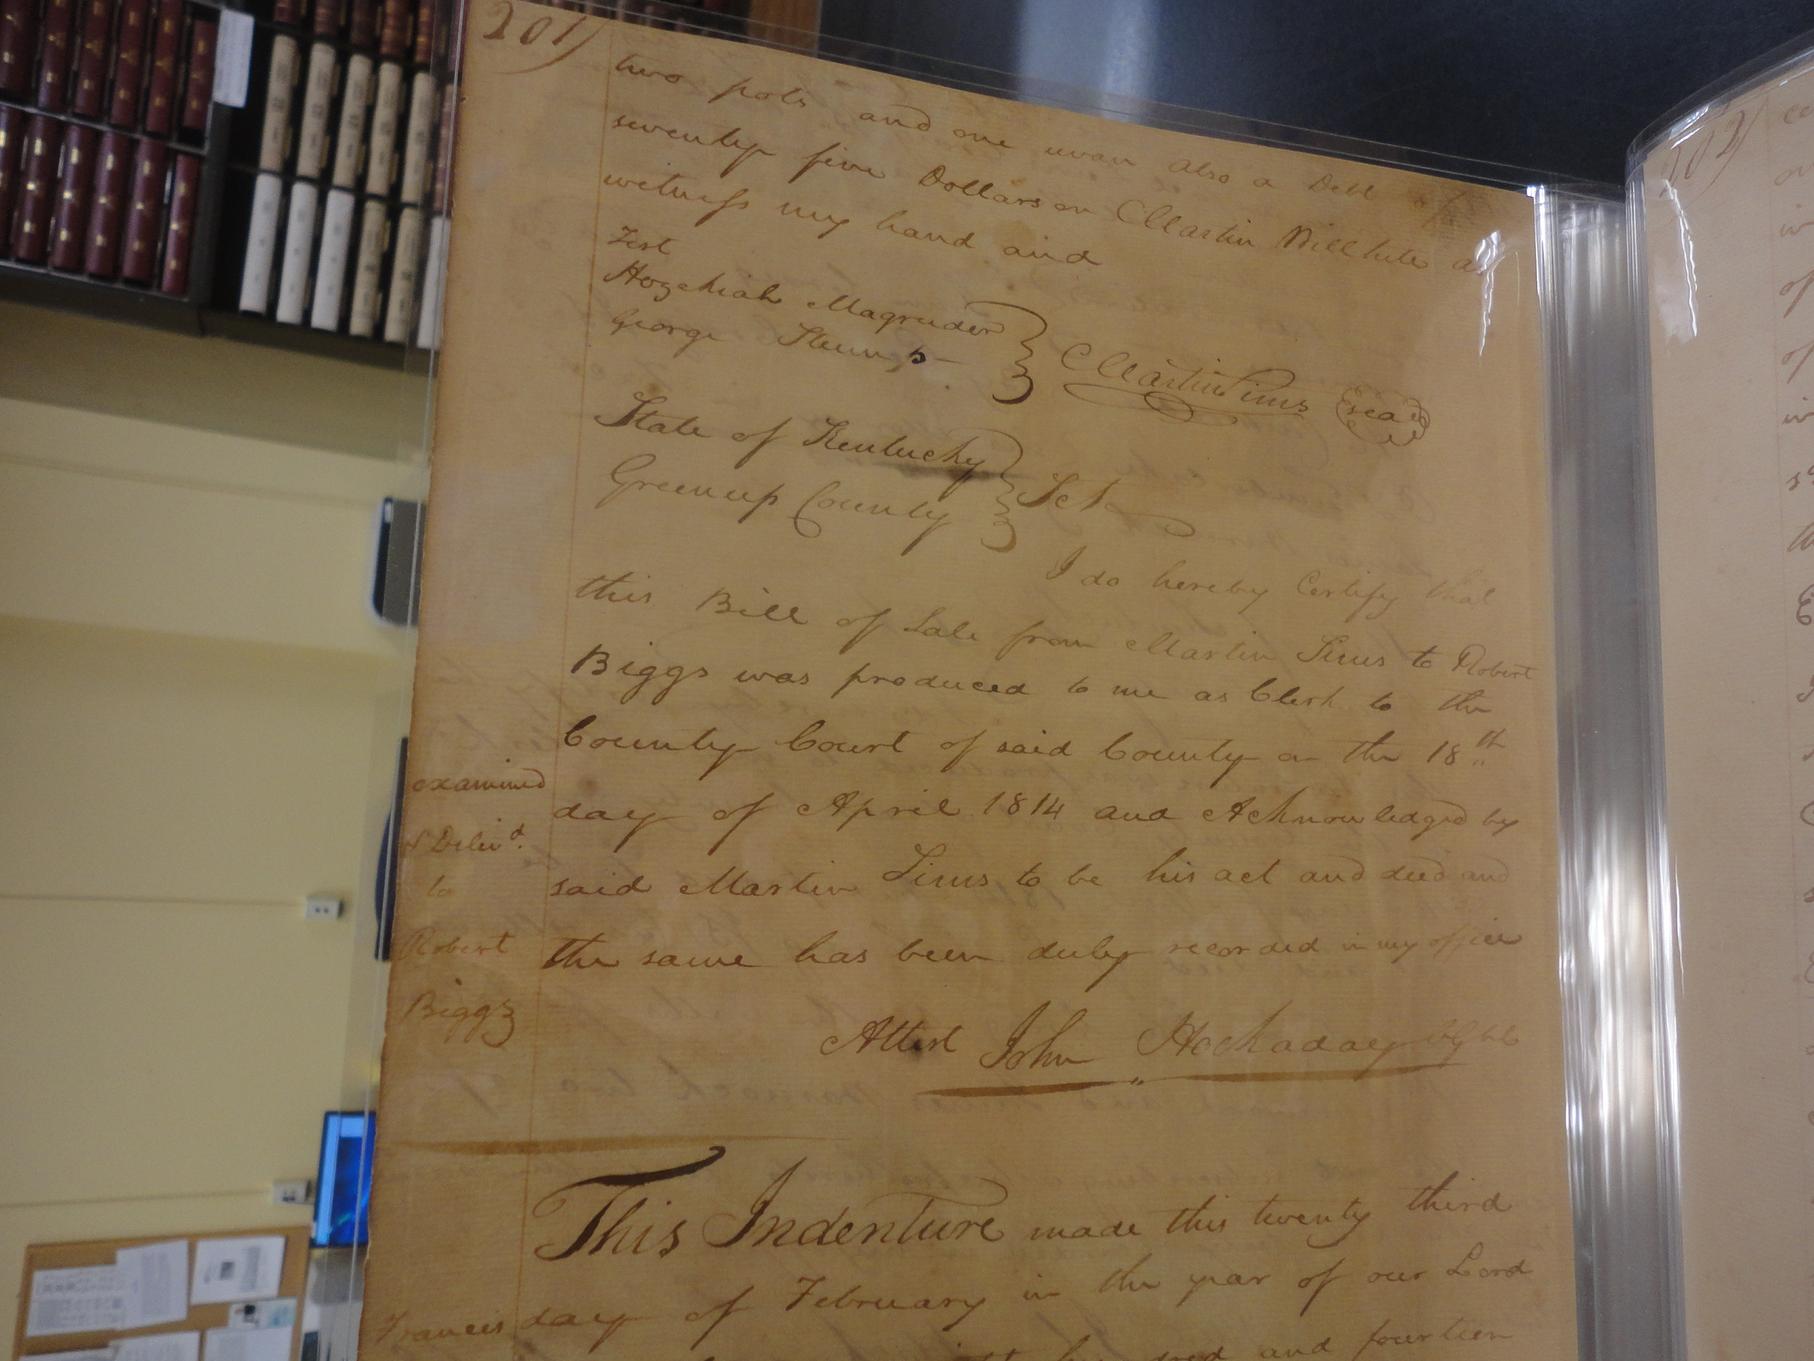 201)
two pots and one uvan also a Debt of
seventy five Dollars on Martin Billhite as
witness my hand and
Test
Hezekiah Magruder
George Stump
Martin Sims Seal
State of Kentucky
Greenup County Sct
I do hereby Certify that
this Bill of Sale from Martin Sims to Robert
Biggs was produced to me as Clerk to the
County Court of said County on the 18th
day of April 1814 and Acknowledged by
said Martin Sims to be his act and deed and
the same has been duly recorded in my office
Attest John Hockaday
examined
& Deliv.d
to
Robert
Biggs
This Indenture made this twenty third
day of February in the year of our Lord
and fourteen
Francis
202)